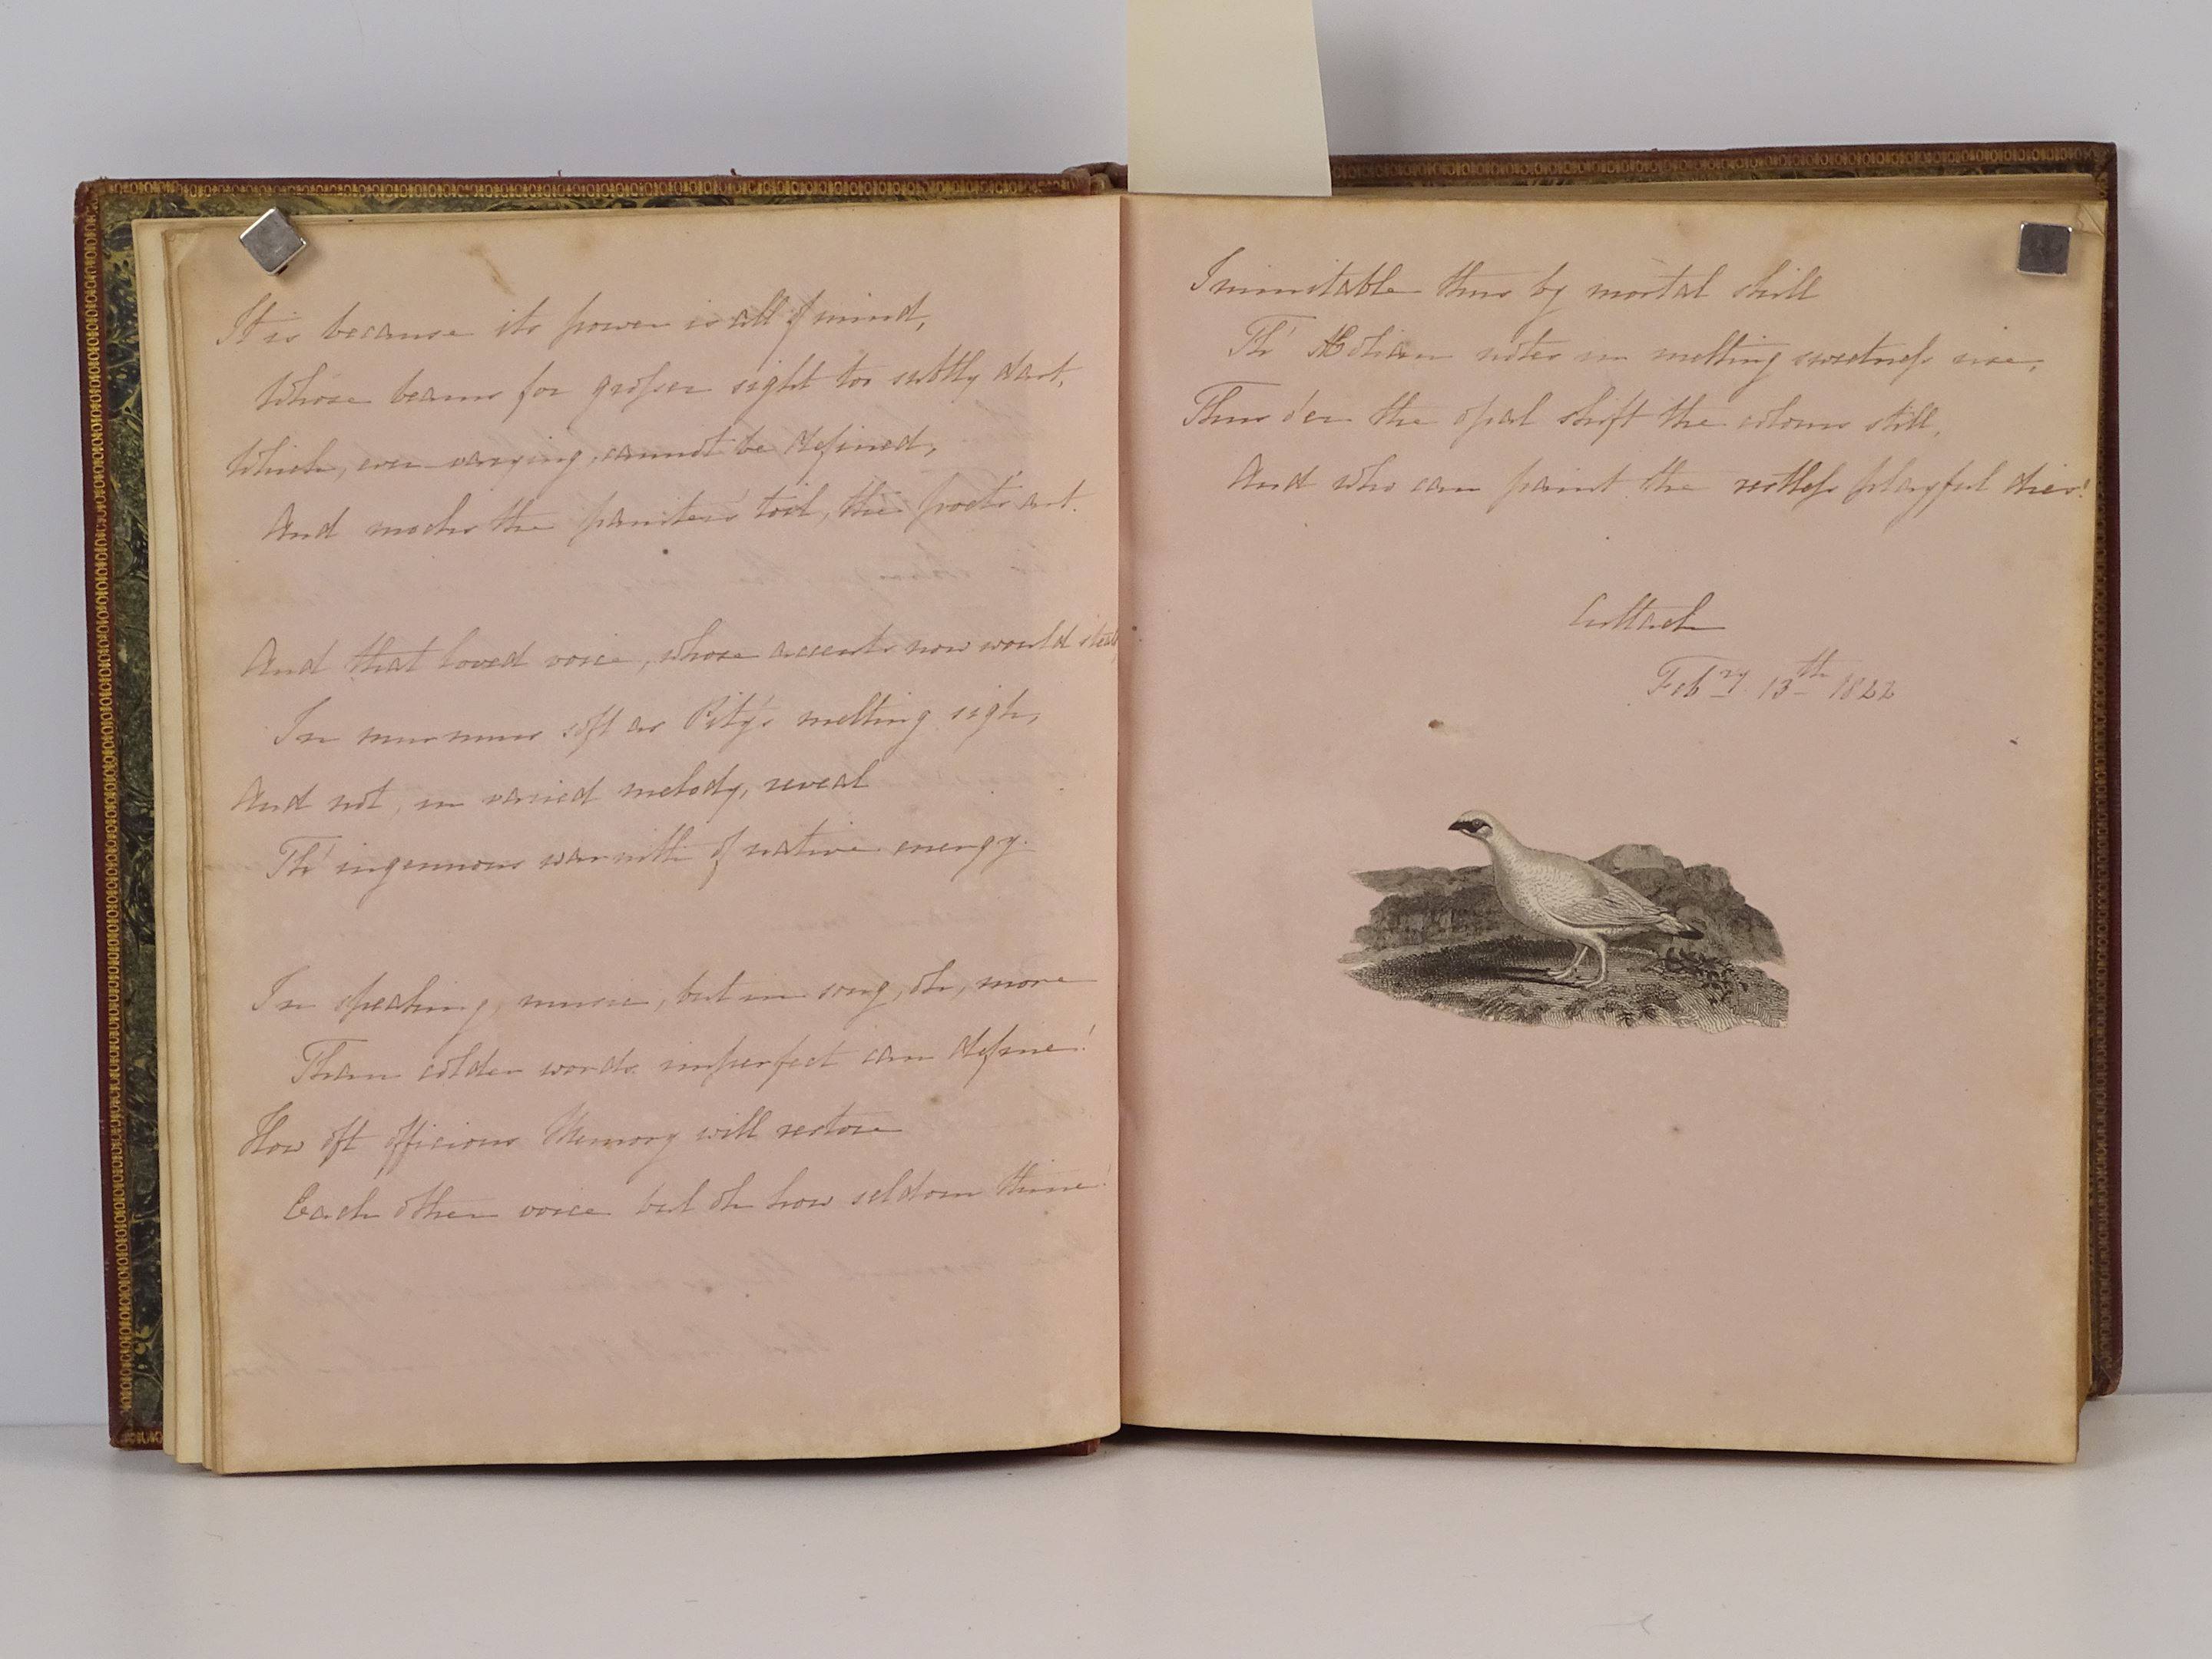 It is because its power is all of mind,
Whose beams for grosser sight too subtly dart,
Which, ever varying, cannot be defined,
And mocks the painter's toil, the poet's art.
And that loved voice, whose accents now would steal,
In murmurs soft as Pity's melting sigh,
And not, in varied melody, reveal
Th' ingenuous warmth of native energy.
In speaking, music, but in song, oh, more
Than colder words imperfect can define!
How oft officious Memory will restore
Each other voice but oh how seldom thine!
Inimitable thus by mortal skill
Th' Æolian notes in melting sweetness rise,
Thus o'er the opal shift the colours still,
And who can paint the restless playful dies!
Cuttack
Feb.ry 13th 1822